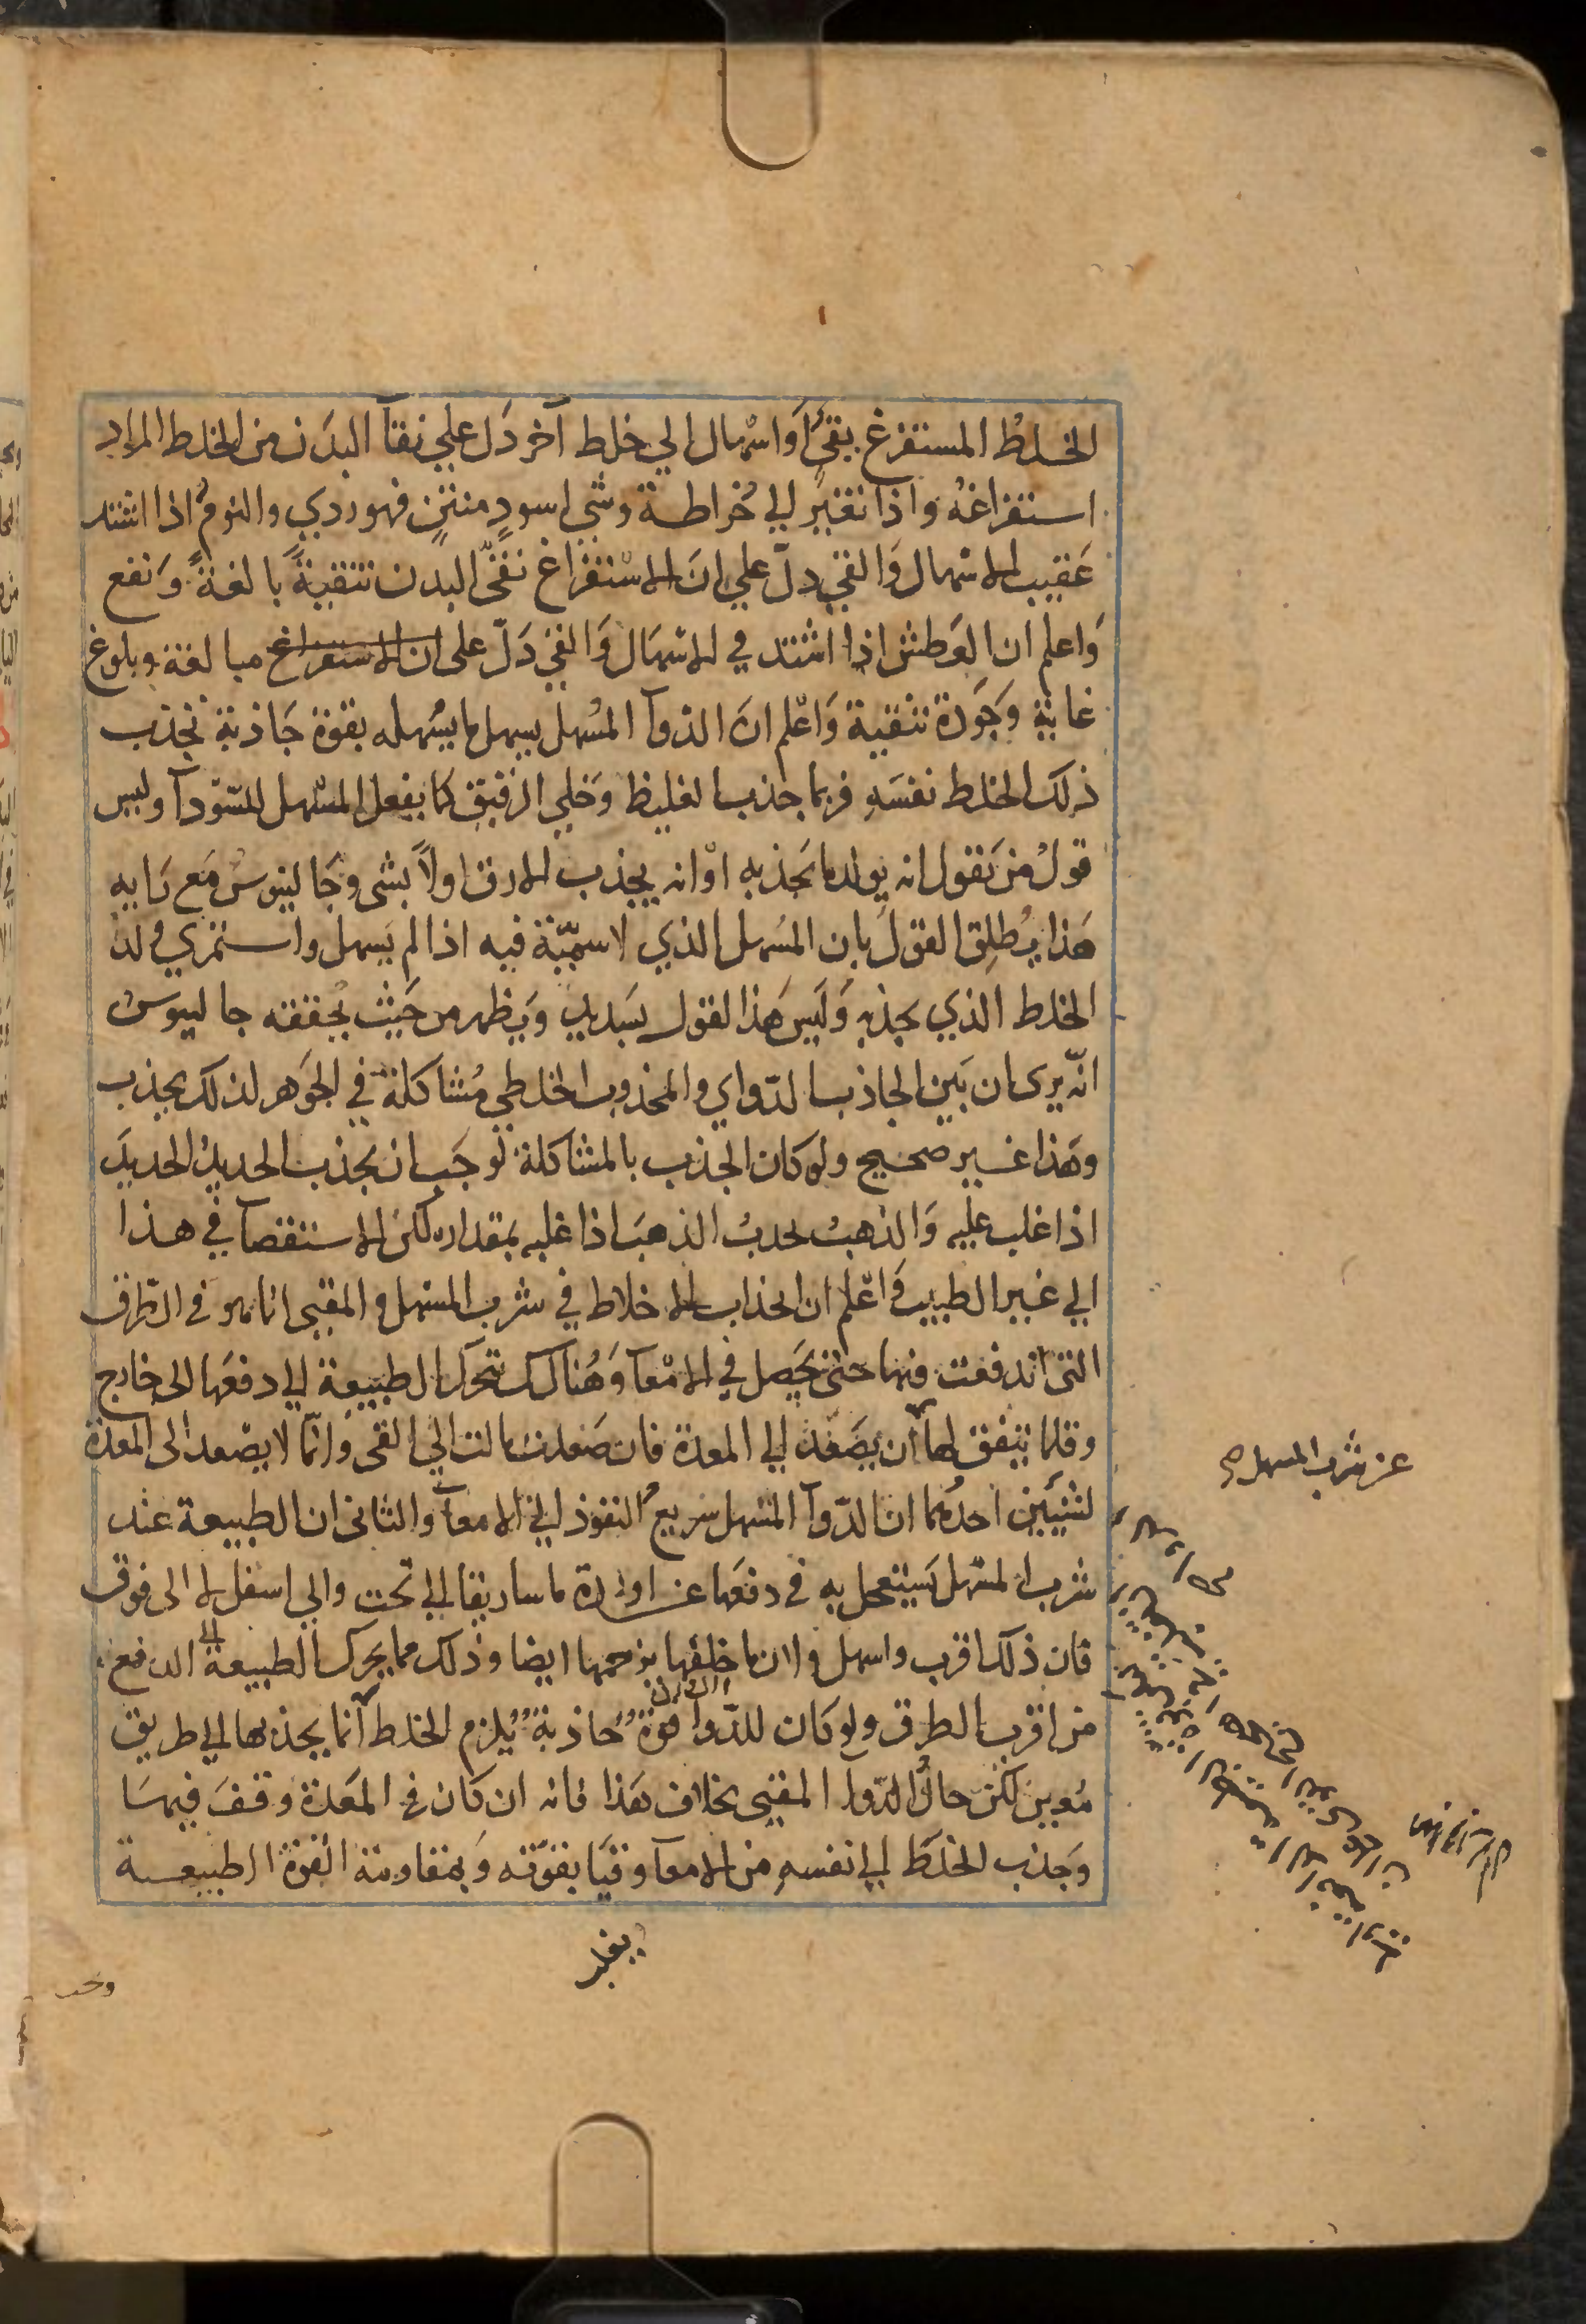 الخلطُ المستفرغ بقئٍ اَو اسْهال الي خلط آخر دَل علي نقآ البدَن من الخلط المراد
استفراغهُ واذا تغير الي خُراطة وشي اسودٍ منتنٍ فهو ردي والنومُ اذا اشتد
عَقيب الاسْهال وَالقي دلّ علي انَ الاسْتفراغ نقّي البدن تنقيةً بالغةً وَنفع
وَاعلم ان العَطش اذا اشتد في الاسْهَال وَالقئ دَلّ على ان الاستفراغ مبالغة وبلوغ
غايةٍ وَجَودة تنقية وَاعْلم انَ الدوآ المُسْهل يسهل ما يسُهله بقوة جَاذبة تجذب
ذلك الخلط نفسَهِ فربما جذب الغليظ وَخلي الرقيق كما يفعل المسْهل للسّودآ وليس
قولُ من يَقول انه يولد ما يَجذبه اوْ انه يجذب الارق اولاً بشي وجَالينوسُ مَع رَايه
هَذا يُطلِق القولَ بان المسُهل الذي لا سميّة فيه اذا لم يَسهل واستمري ولد
الخلط الذي يجذبه وَليَس هَذا القول بسَديدٍ وَيَظهر من حَيث يُحققه جالينوسُ
انّه يرى ان بَين الجاذب الدّواي والمجذوب الخلطي مُشاكلة في الجَوهر لذلك يجذب
وهَذا غير صحيح ولو كان الجذب بالمشاكلة لوَجَب ان يجذب الحديدُ الحديدَ
اذا غلب عليه وَالذهبُ يجذبُ الذهبَ اذا غلبه بمقداره لكن الاستقصآ في هذا
الي غير الطبيب وَاعْلم ان انجذاب الاخلاط في شرب المسهل والمقيى انما هو في الطّرق
التي اندفعت فيها حتى تحَصل في الامْعآ وَهُناك تتحرك الطبيعة الي دفعَها الى خارج
وقلما يتفق لها أن يَصَعد الي المعدة فان صَعدت مالت الي القى وَانّما لا يصْعد الى المعدة
لشيئَين احدُهما ان الدّوآ المسهل سَريعُ النفوذ الي الامعآ والثانى ان الطبيعة عند
شرب المسْهل يَستعجل به في دفعَها عن اوردة ماساريقا الي تحت والي اسفل لا الى فوق
فان ذلك اقرب واسهل ولان ما خلفها يزحمها ايضا وذلك مما يحَرك الطبيعة الى الدفع
من اقرب الطرق ولو كان للدّوا قوةُ جاذبةُ يُلزم الخلط آنما يجذبها الي طريق
مُعين لكن حالُ الدّوا المقيى بخلاف هَذا فانه ان كان في المَعدة وقفَ فيهَا
وَجذب الخلطَ الي نفسهِ من الامعآ وقيّا بقوّته وَبمقاومة القوة الطبيعية
عند شرب المسهل